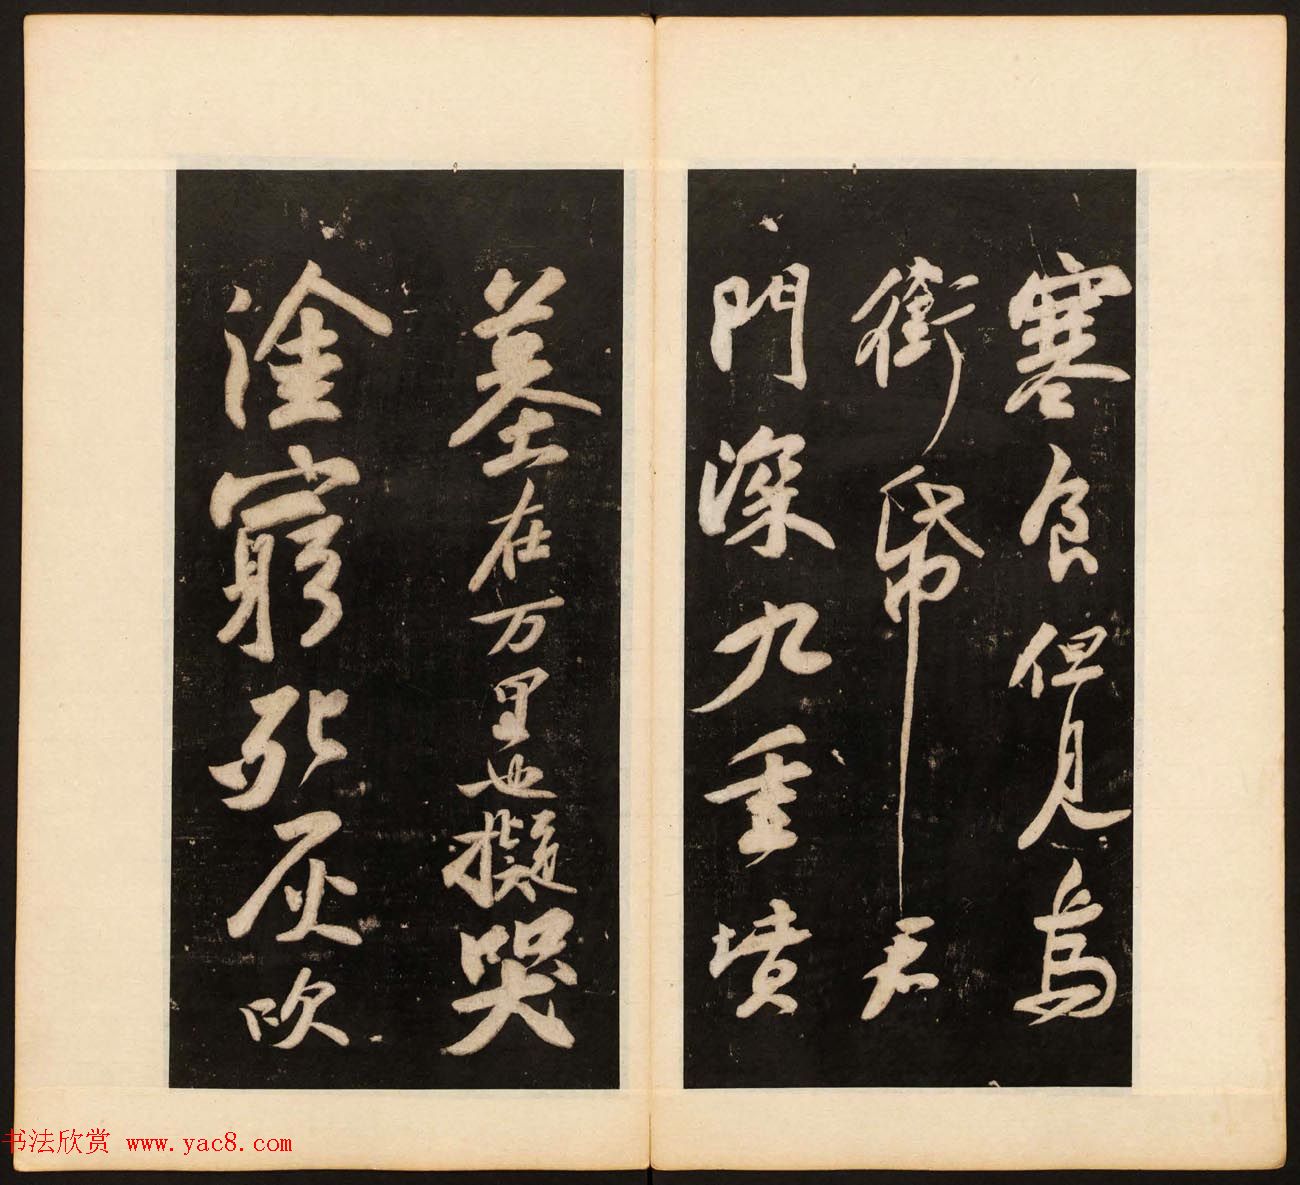 寒食但見烏
銜帋君
門深九重墳
墓在万里也擬哭
塗窮死灰吹
书法欣赏 www.yac8.com